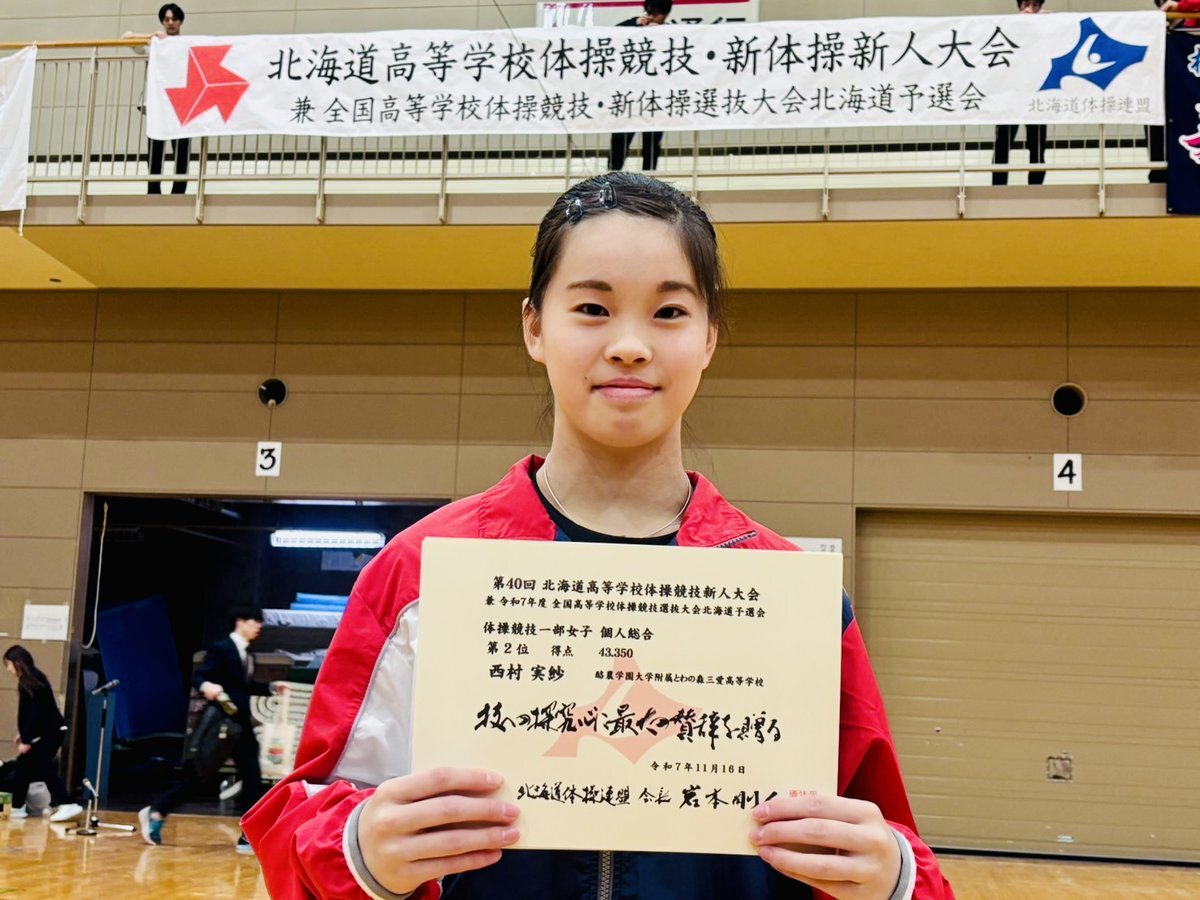 通行
北海道高等学校体操競技・新体操新人大会
兼 全国高等学校体操競技・新体操選抜大会北海道予選会
北海道体操連盟
3
4
第40回 北海道高等学校体操競技新人大会
兼 令和7年度 全国高等学校体操競技選抜大会北海道予選会
体操競技一部女子 個人総合
第2位 得点 43.350
西村 実紗 酪農学園大学附属とわの森三愛高等学校
技への探究心に最大の賛辞を贈る
令和7年11月16日
北海道体操連盟 会長 岩本剛人